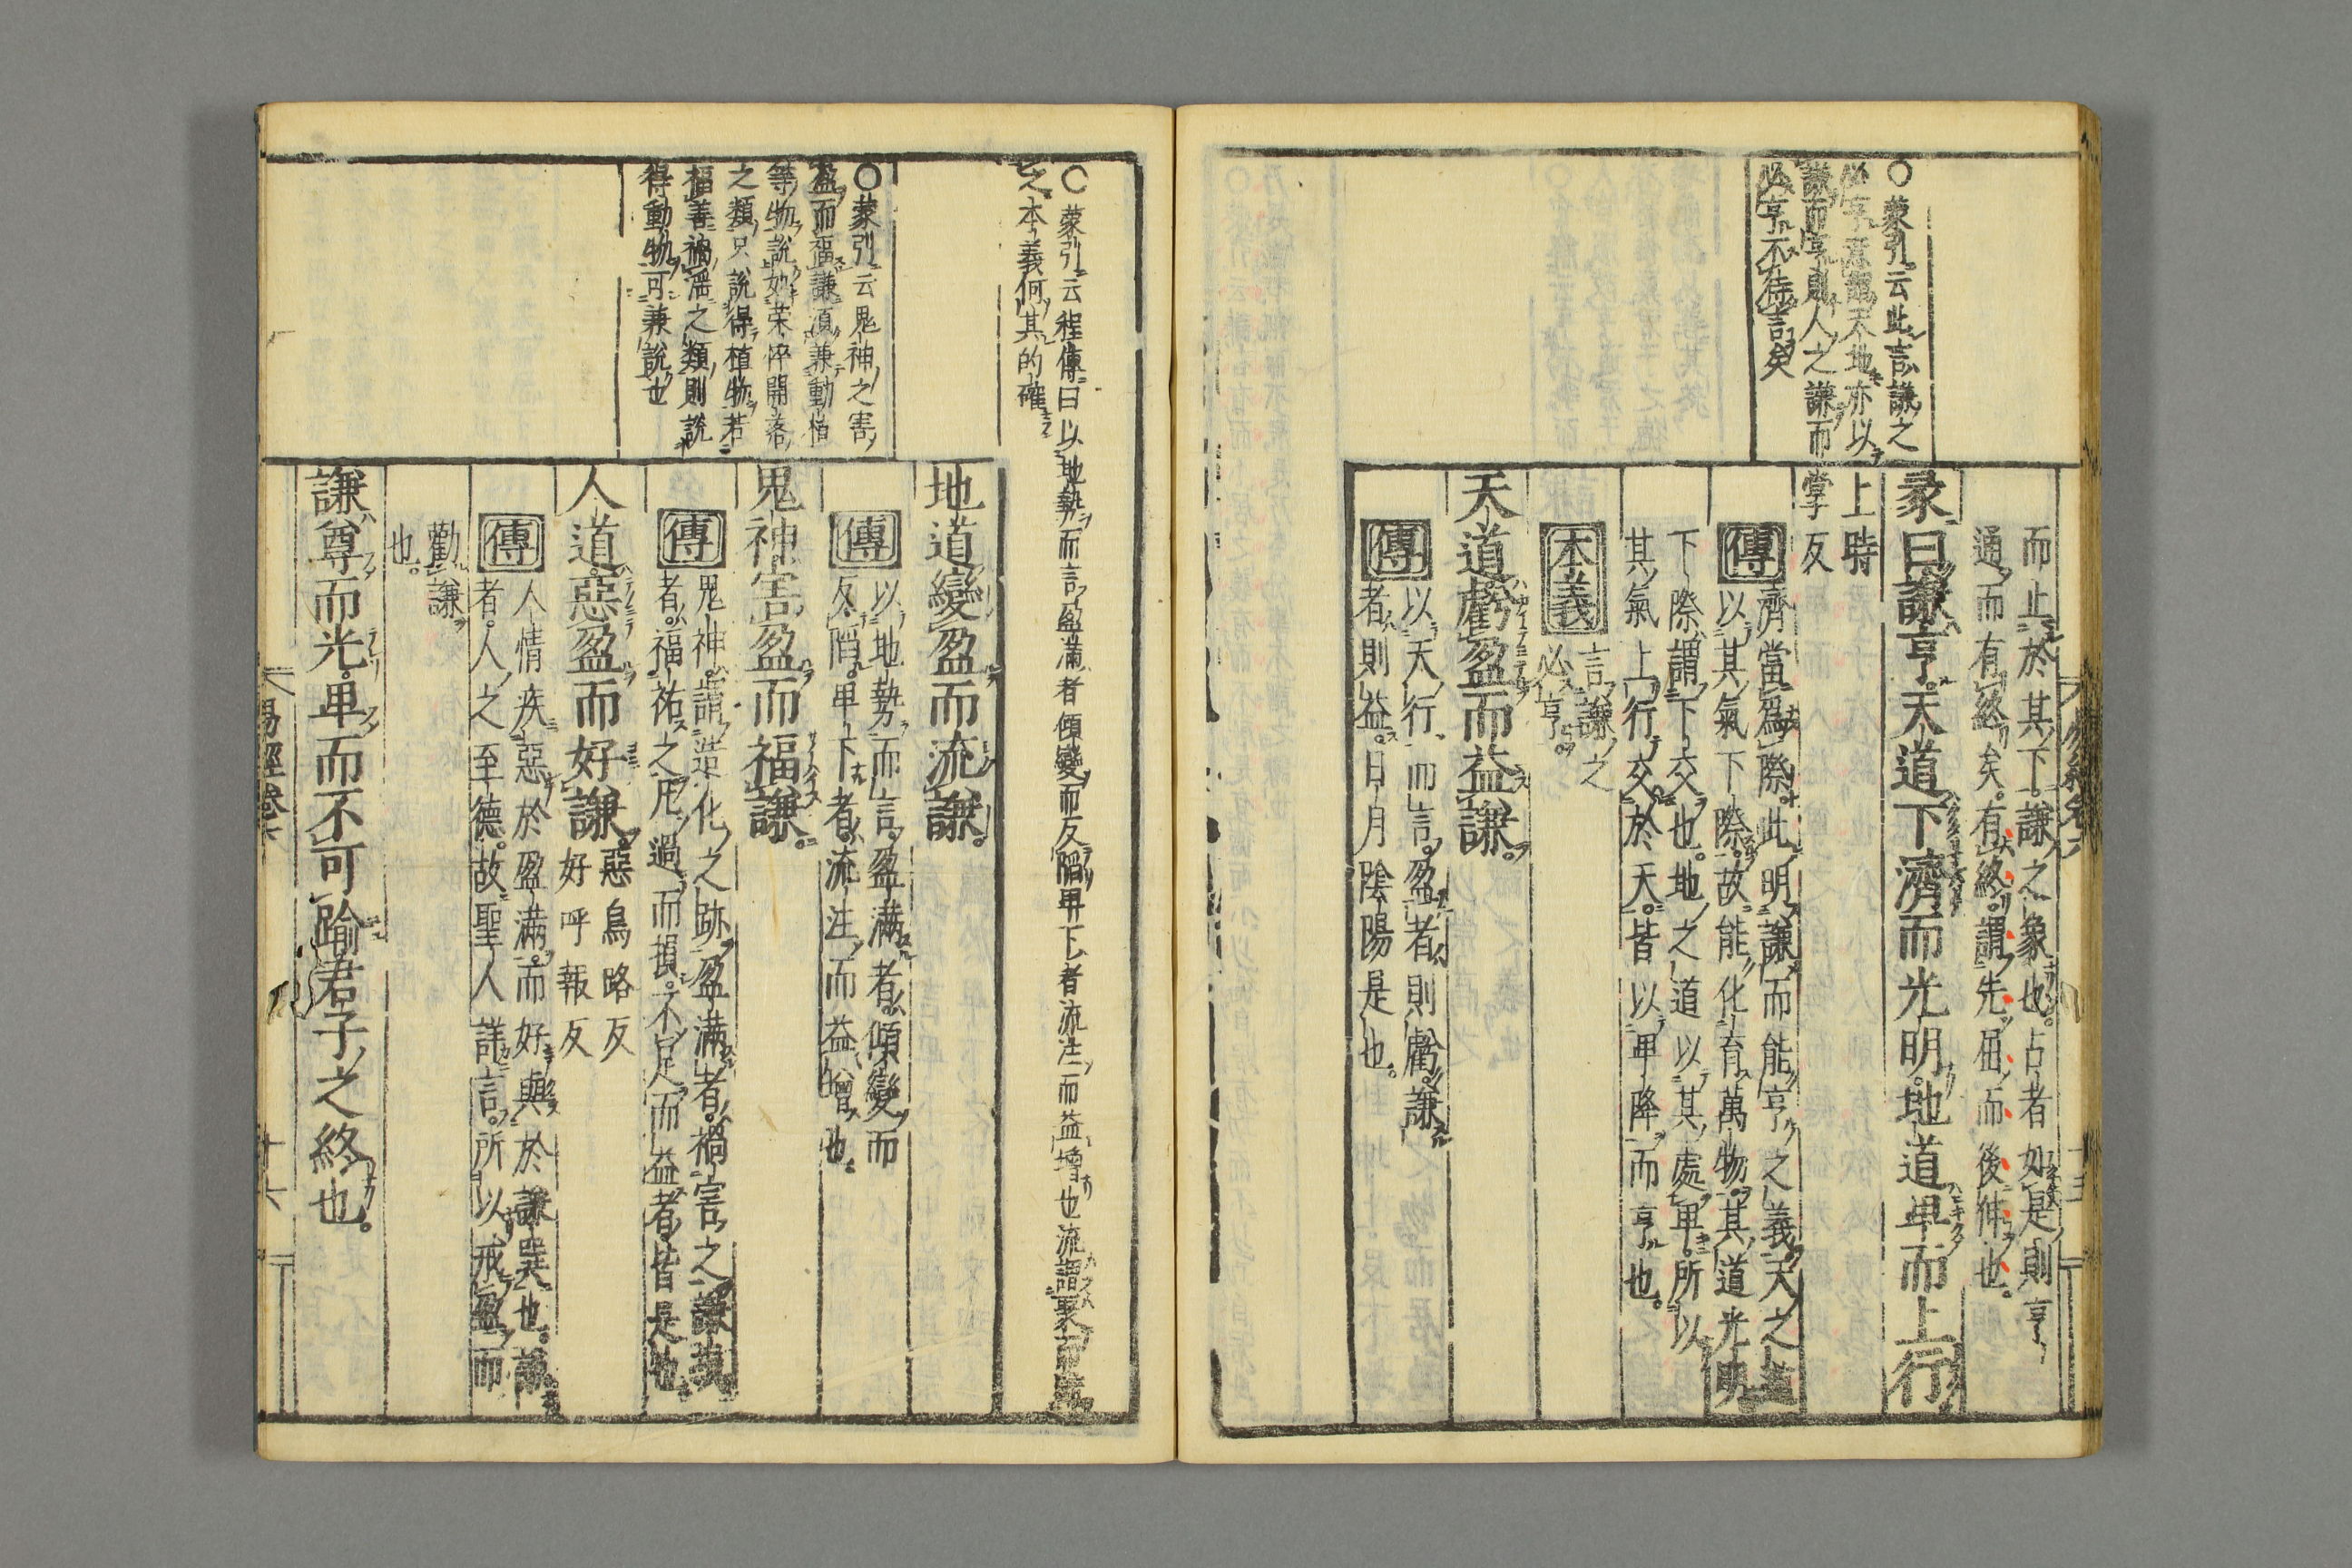 ○蒙引云此言謙之
必亨意謂天地亦以
謙而亨則人之謙而
必亨不待言矣
而止於其下謙之象也占者如是則亨
通而有終矣有終謂先屈而後伸也
彖曰謙亨天道下濟而光明地道卑而上行
上時
掌反
傳
濟當爲際此明謙而能亨之義天之道
以其氣下際故能化育萬物其道光明
下際謂下交也地之道以其處卑所以
其氣上行交於天皆以卑降而亨也
本義
言謙之
必亨
天道虧盈而益謙
傳
以天行而言盈者則虧謙
者則益日月陰陽是也
○蒙引云程傳曰以地勢而言盈滿者傾變而反陷卑下者流注而益增也流謂聚而
之本義何其的確
○蒙引云鬼神之害
盈而福謙須兼動植
等物說如榮悴開落
之類只說得植物若
福善禍淫之類則說
得動物可兼說也
地道變盈而流謙
傳
以地勢而言盈滿者傾變而
反陷卑下者流注而益增也
鬼神害盈而福謙
傳
鬼神謂造化之跡盈滿者禍害之謙損
者福祐之凡過而損不足而益者皆是也
人道惡盈而好謙
惡烏路反
好呼報反
傳
人情疾惡於盈滿而好與於謙巽也謙
者人之至德故聖人詳言所以戒盈而
勸謙
也
謙尊而光卑而不可踰君子之終也
易經卷六
十六